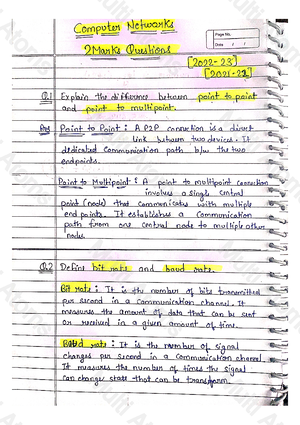 Computer Networks
Page No.
Date / /
2 Marks Questions
[2022-23]
[2021-22]
Q.1 Explain the difference between point to point
and point to multipoint.
Ans Point to Point : A P2P connection is a direct
link between two devices. It
dedicated communication path b/w the two
endpoints.
Point to Multipoint : A point to multipoint connection
involves a single central
point (node) that communicates with multiple
end points. It establishes a communication
path from one central node to multiple other
nodes.
Q.2 Define bit rate and baud rate.
Bit rate : It is the number of bits transmitted
per second in a communication channel. It
measures the amount of data that can be sent
or received in a given amount of time.
Baud rate : It is the number of signal
changes per second in a communication channel.
It measures the number of times the signal
can change state that can be transform.